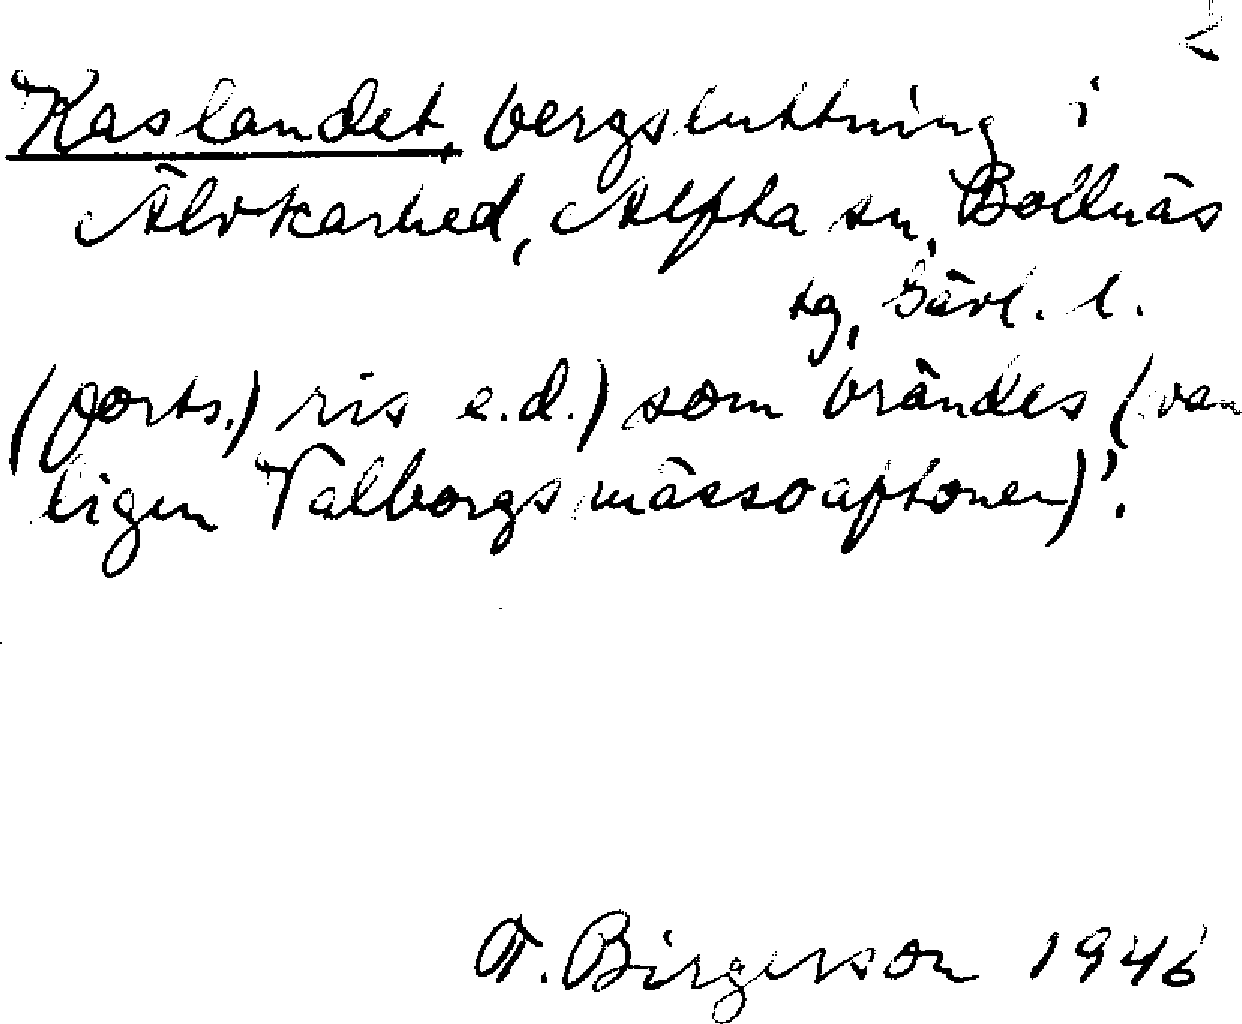 2
Kaslandet, bergsluttning i
Älvkarhed, Alfta sn, Bollnäs
tg, Gävl. l.
(forts.) ris e.d.) som brändes (van
ligen Valborgsmässoaftonen)'.
T. Birgerson 1946